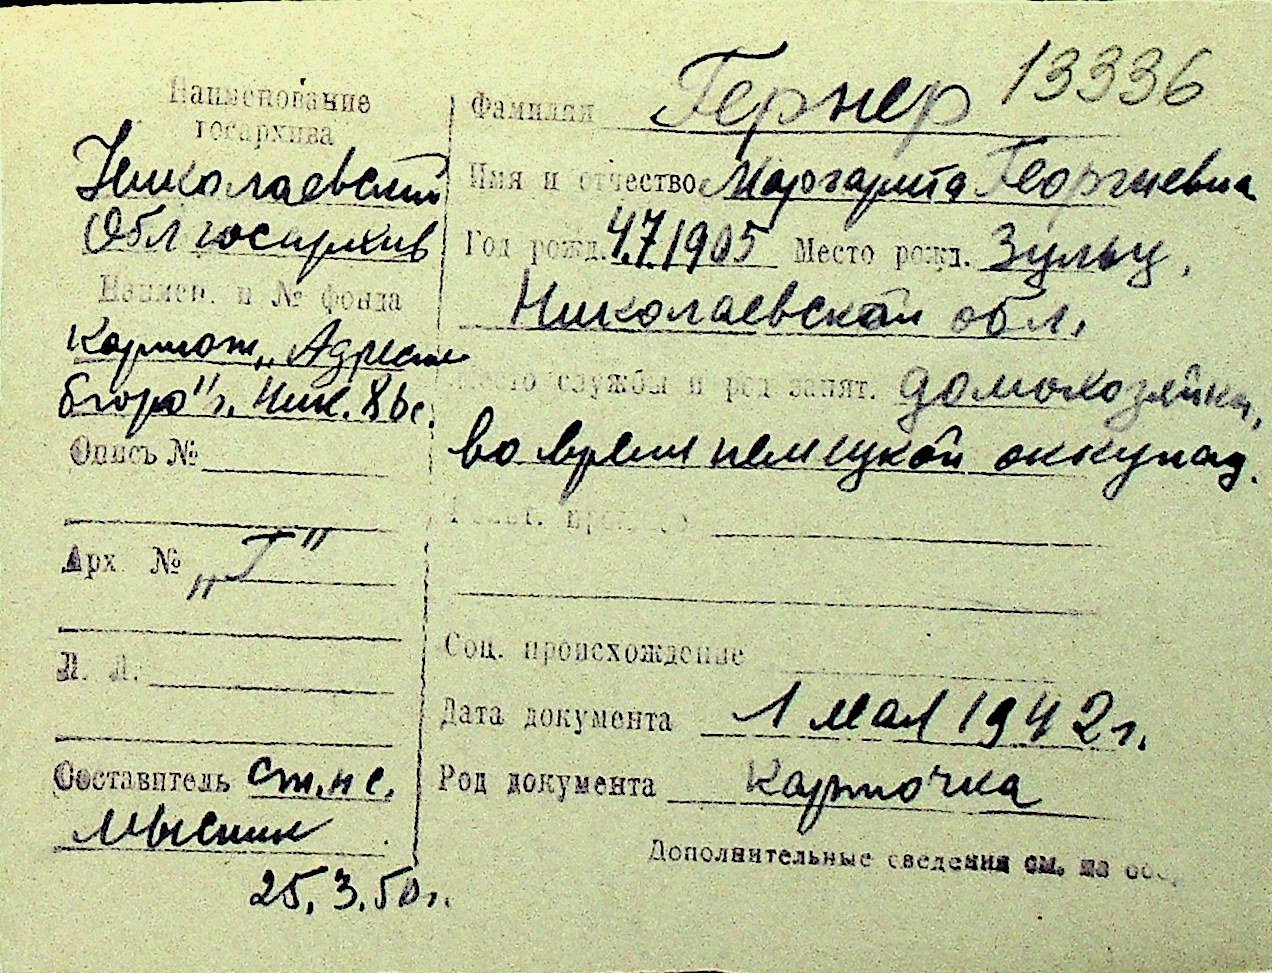 Наименование
госархива
Николаевский
Облгосархив
Наимен. и № фонда
Картот. „Адресн.
бюро" г. Ник.
Опись №
Арх. № „Г"
Л. Л.
Составитель ст. н. с.
25.3.50 г.
13336
Фамилия Гернер
Имя и отчество Маргарита Георгиевна
Год рожд. 4.7.1905 Место рожд. Зульц,
Николаевской обл.
Место службы и род занят. домохозяйка,
во время немецкой оккупац.
Соц. происхождение
Дата документа 1 мая 1942 г.
Род документа Карточка
Дополнительные сведения см. на